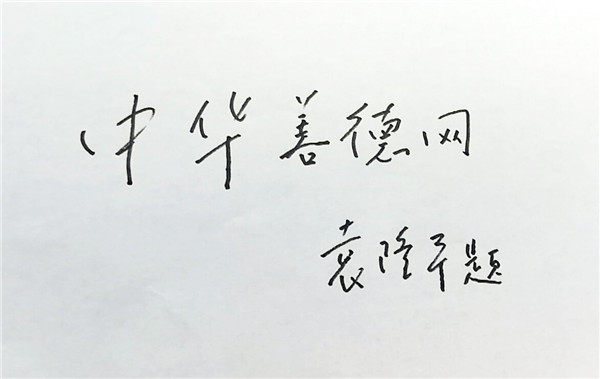 中华善德网
袁隆平题